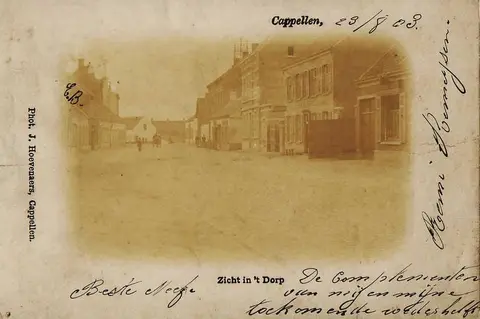 Cappellen, 23/8 03.
E.B.
Phot. J. Hoevenaers, Cappellen.
Zicht in 't Dorp
Beste Neefe
De Complementen
van mij en mijne
toekomende wederhelft